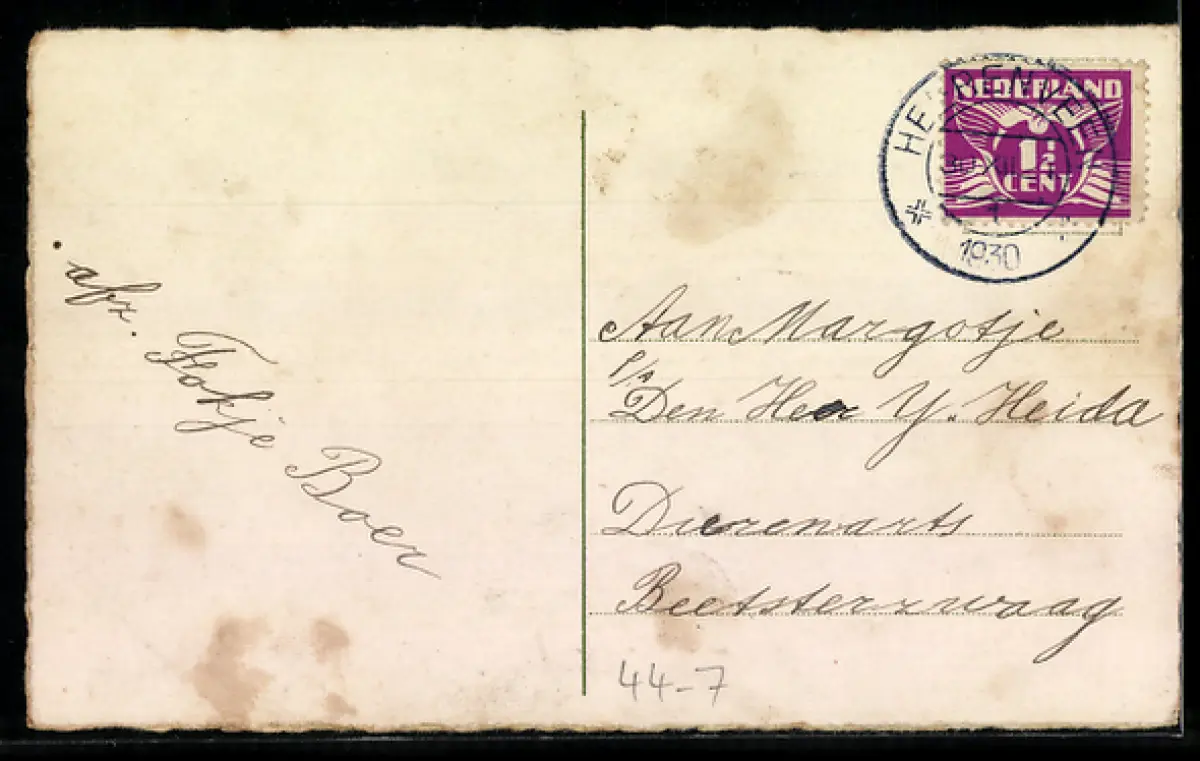 NEDERLAND
1½
CENT
1930
afz. Fokje Boer
Aan Margotje
p/a
Den Heer Y. Heida
Dierenarts
Beetsterzwaag
44-7